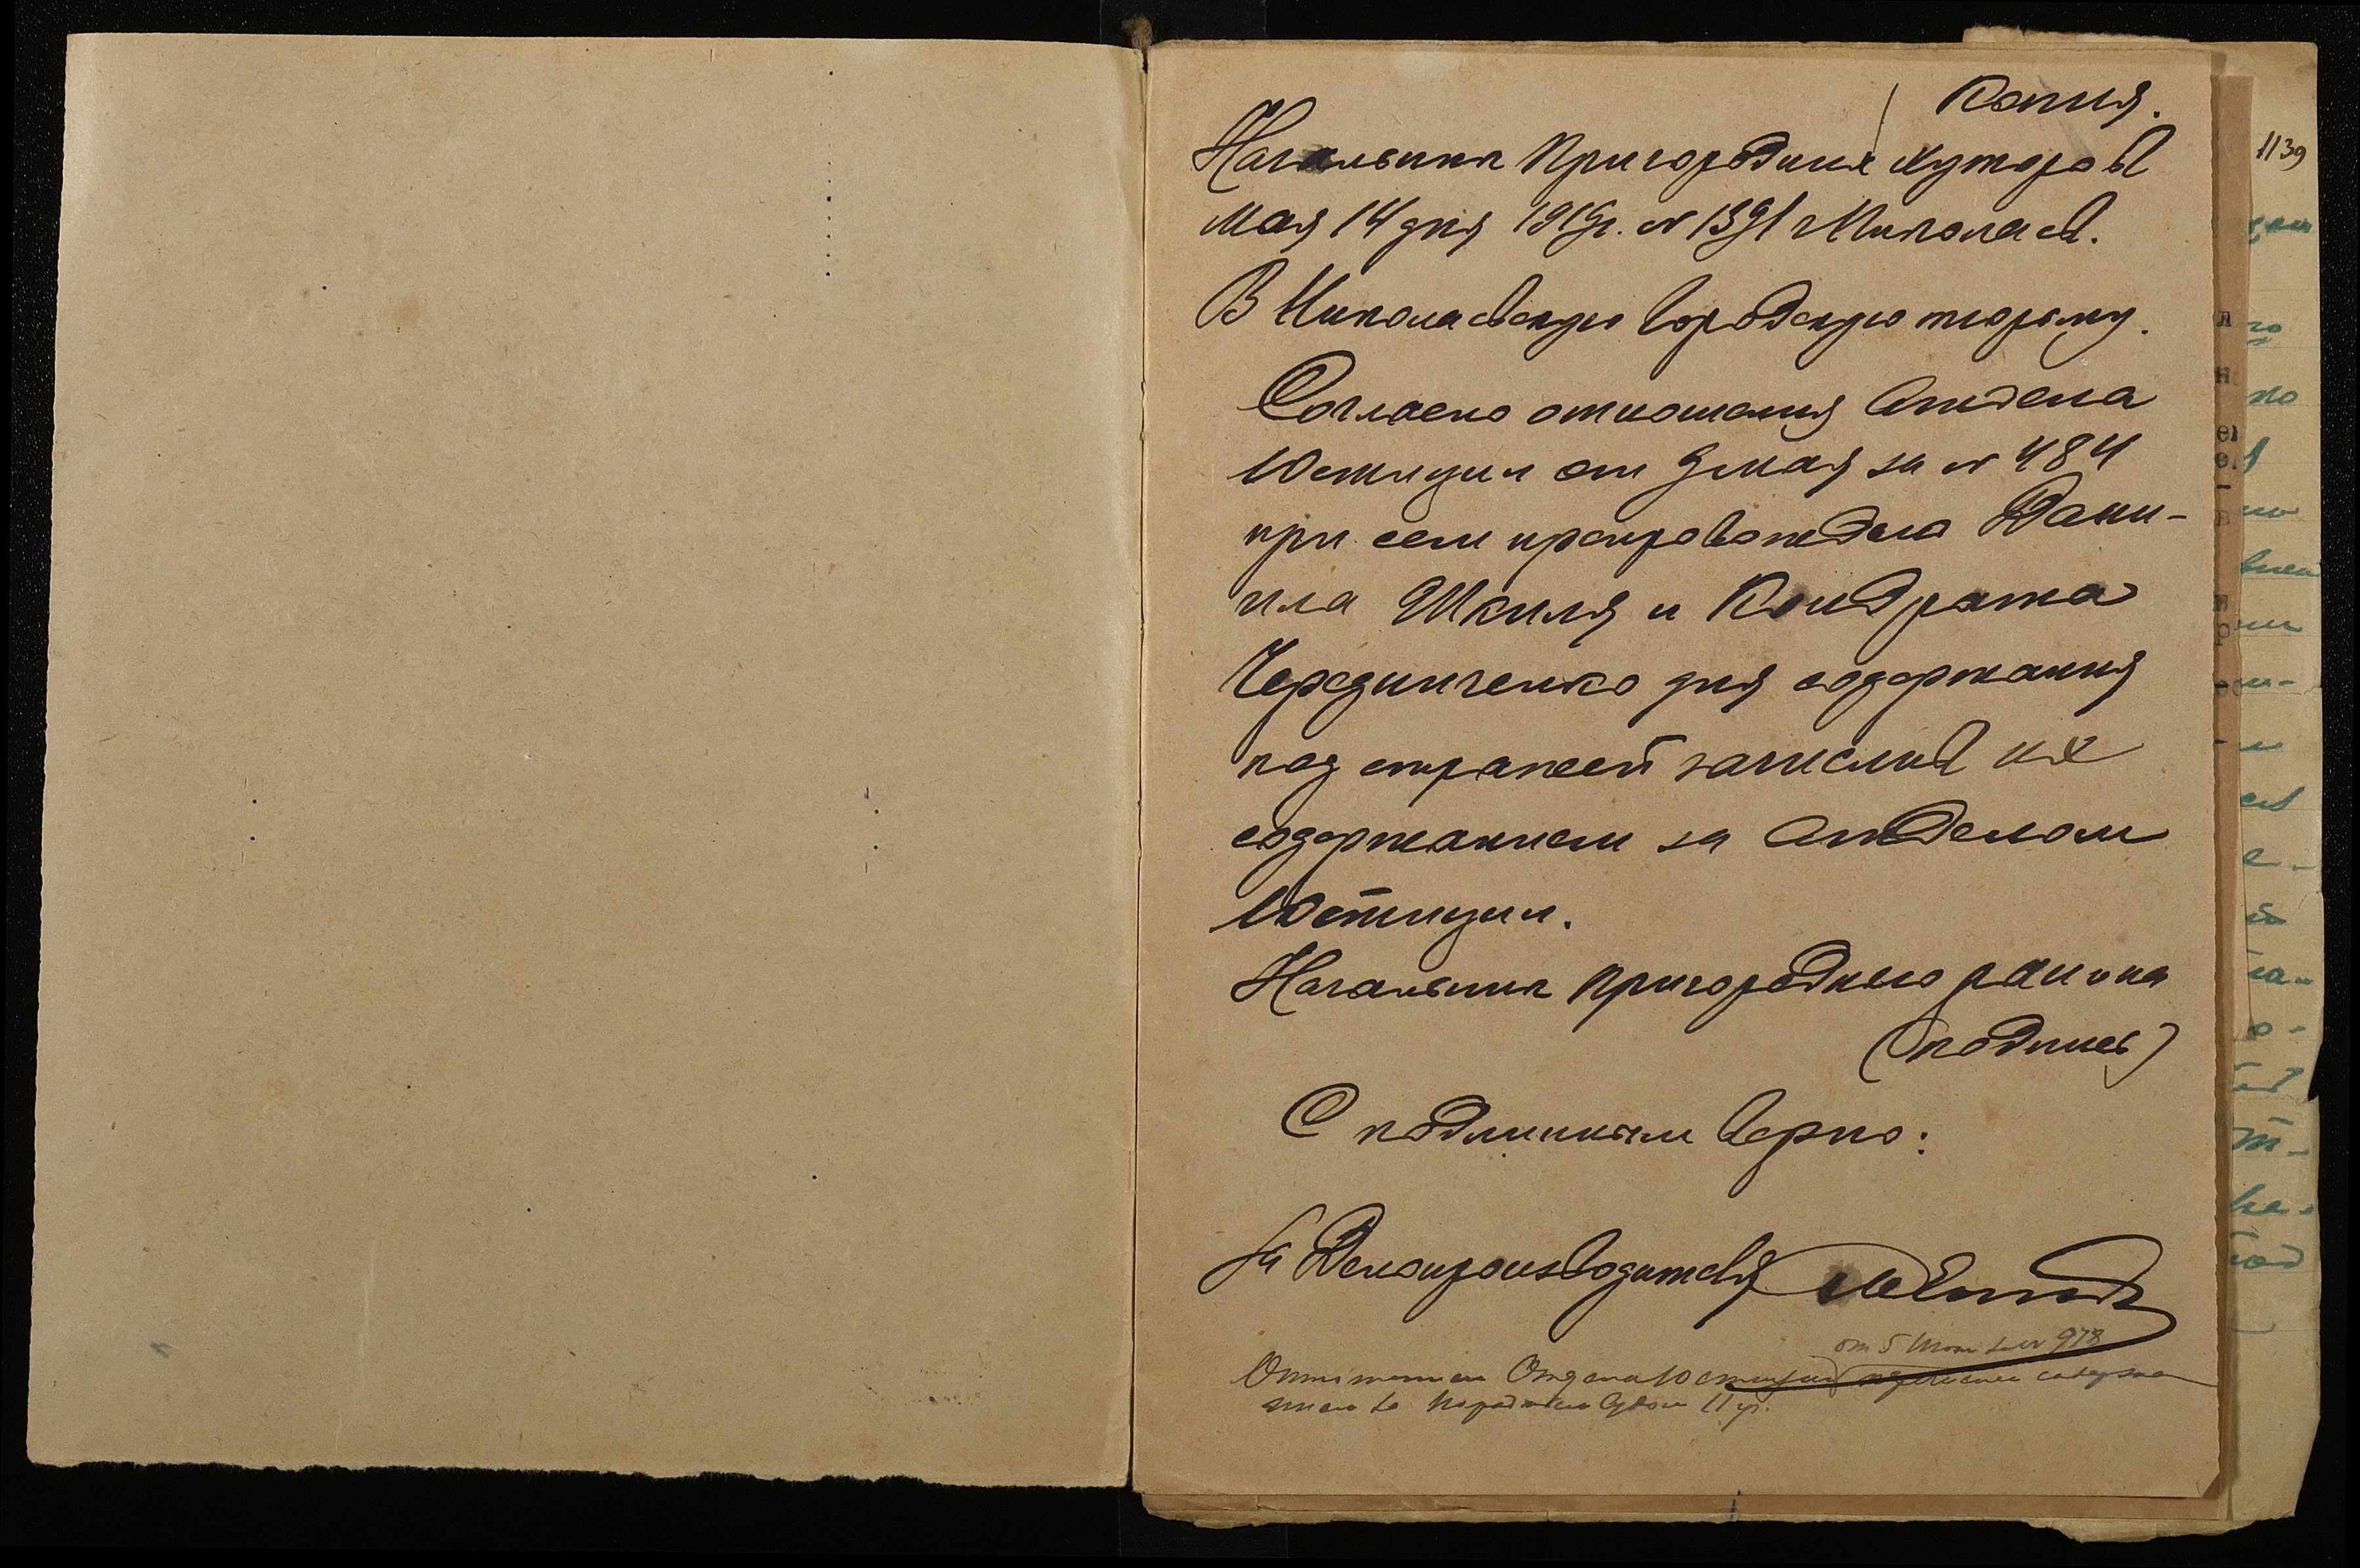 Копия.
Начальник Пригородних Хуторов
мая 14 дня 1919г. № 1391 Николаев.
В Николаевскую Городскую тюрьму.
Согласно отношения Отдела
Юстиции от 9 мая за № 484
при сем препровождаю Дани-
ила Шкиля и Кондрата
Чередниченко для содержания
под стражей зачислив их
содержанием за Отделом
Юстиции.
Начальник Пригородного района
(подпись)
С подлинным верно:
За Делопроизводителя
от 5 Июня за № 978
Отдела Юстиции
Народным Судом 11 уч.
1139